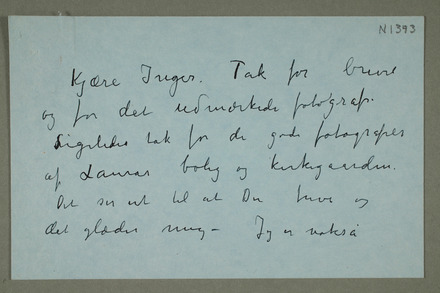 N1393
Kjære Inger. Tak for brevet
og for det udmærkede fotografi.
Ligeledes tak for de gode fotografier
af Lauras bolig og kirkegaarden.
Det ser ut til at Du trives og
det glæder mig – Jeg er også